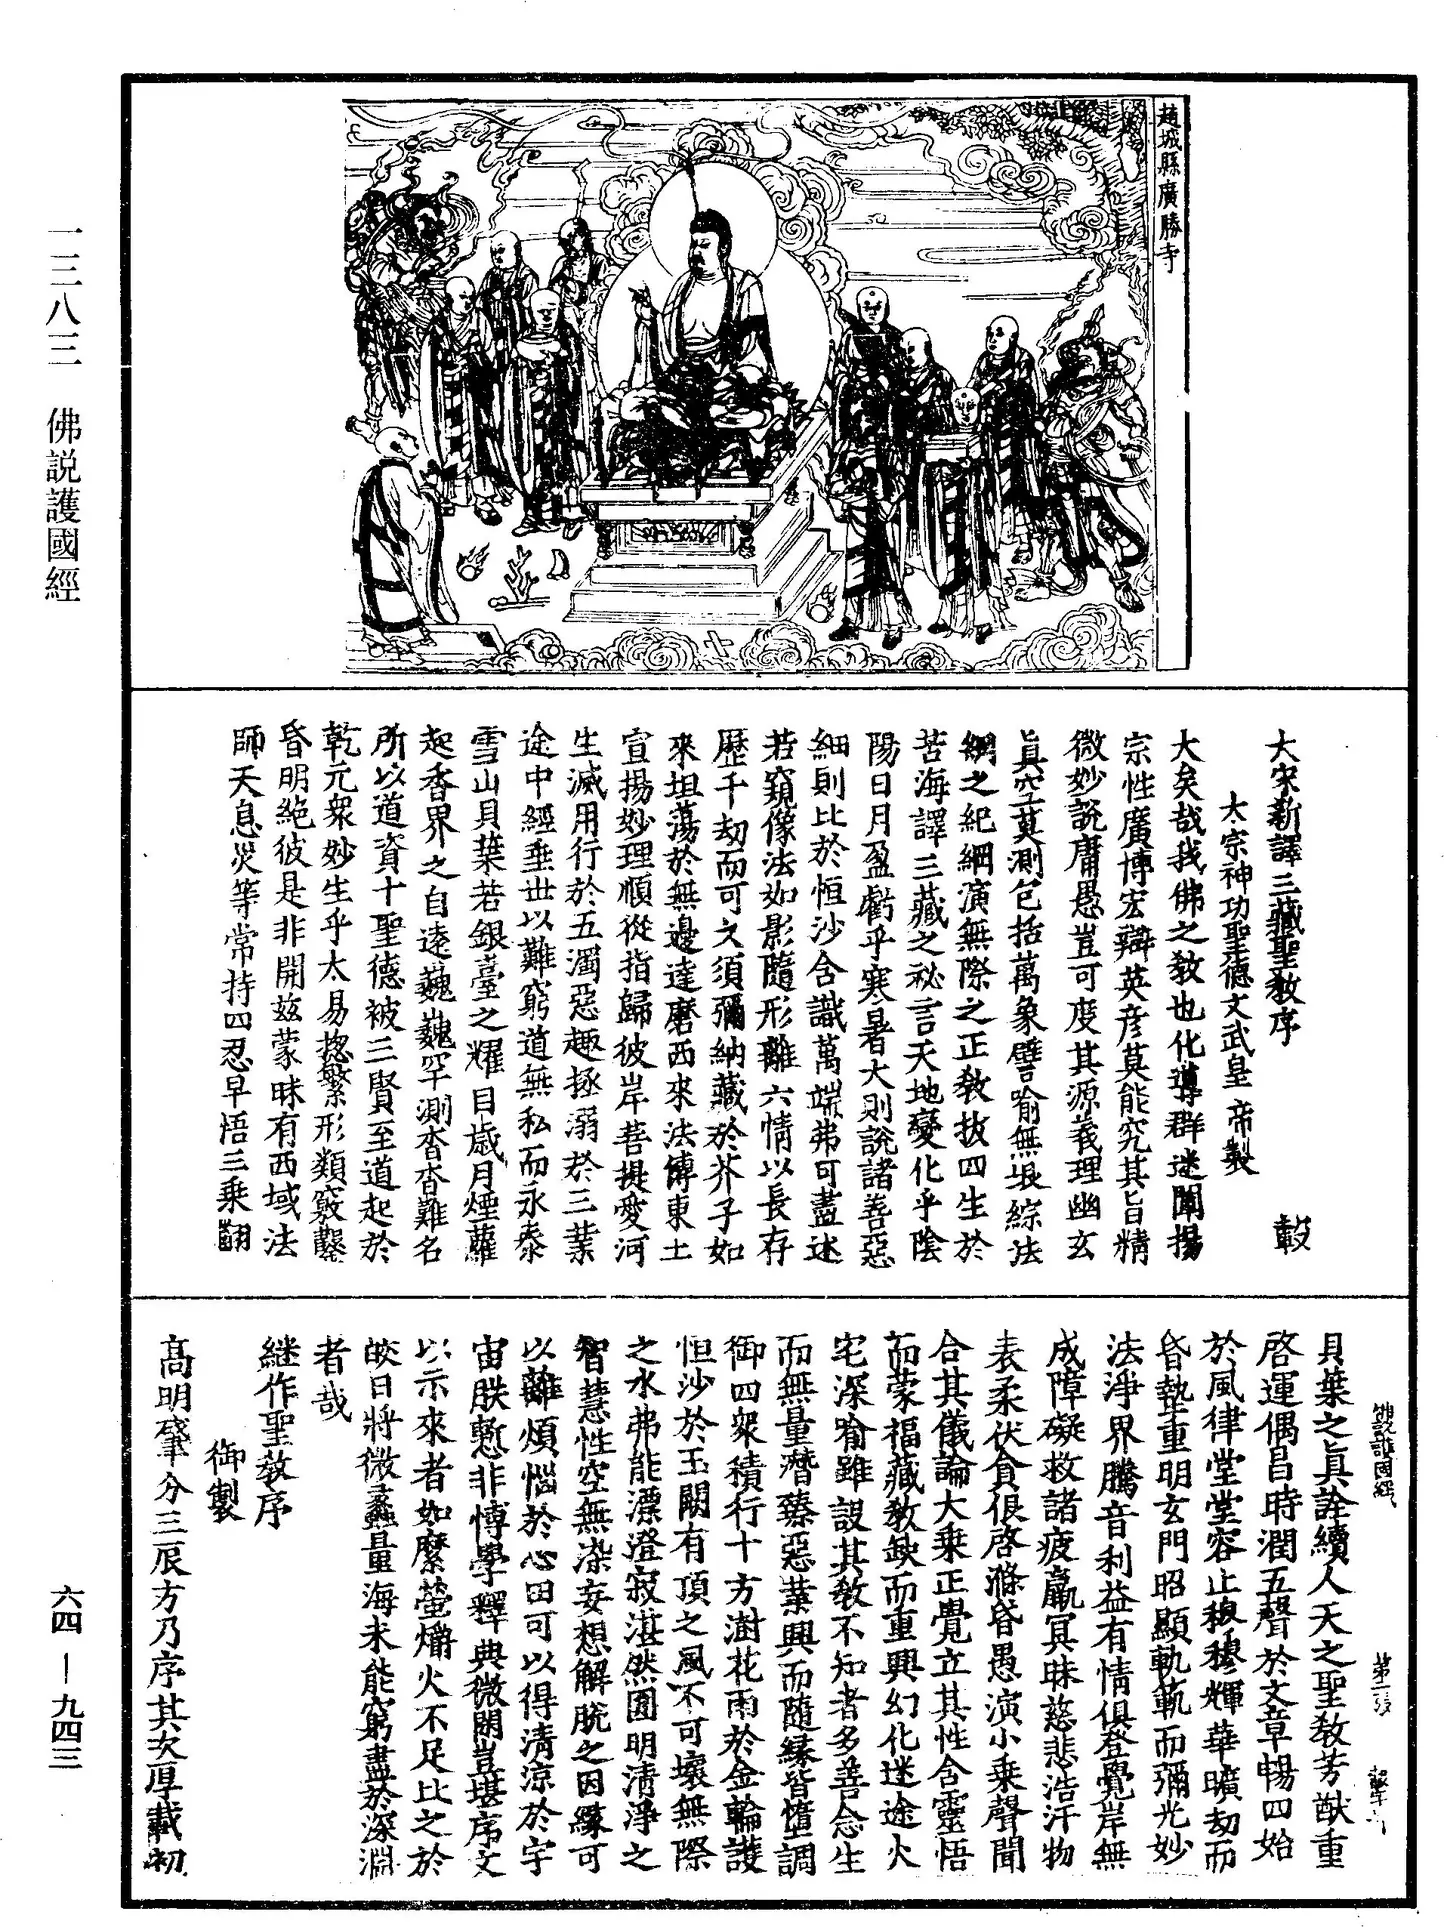 趙城縣廣勝寺
大宋新譯三藏聖教序
轂
太宗神功聖德文武皇帝製
大矣哉我佛之教也化導群迷闡揚
宗性廣博宏辯英彦莫能究其旨精
微妙說庸愚豈可度其源義理幽玄
真空莫測包括萬象譬喻無垠綜法
網之紀綱演無際之正教拔四生於
苦海譯三藏之祕言天地變化乎陰
陽日月盈虧乎寒暑大則說諸善惡
細則比於恒沙含識萬端弗可盡述
若窺像法如影隨形離六情以長存
歷千劫而可久須彌納藏於芥子如
來坦蕩於無邊達磨西來法傳東土
宣揚妙理順從指歸彼岸菩提愛河
生滅用行於五濁惡趣拯溺於三業
途中經垂世以難窮道無私而永泰
雪山貝葉若銀臺之耀目歲月煙蘿
起香界之自遠巍巍罕測杳杳難名
所以道資十聖德被三賢至道起於
乾元衆妙生乎太易揔繁形類竅鑿
昏明絶彼是非開兹蒙昧有西域法
師天息災等常持四忍早悟三乘翻
佛說護國經
第二張
轂
貝葉之真詮續人天之聖教芳猷重
啓運偶昌時潤五聲於文章暢四始
於風律堂堂容止穆穆輝華曠劫而
昏蟄重明玄門昭顯軌範而彌光妙
法淨界騰音利益有情俱登覺岸無
成障礙救諸疲羸冥昧慈悲浩汗物
表柔伏貪佷啓滌昏愚演小乘聲聞
合其儀論大乘正覺立其性含靈悟
而蒙福藏教缺而重興幻化迷途火
宅深喻雖設其教不知者多善念生
而無量潛臻惡業興而隨緣皆墮調
御四衆積行十方澍花雨於金輪護
恒沙於玉闕有頂之風不可壞無際
之水弗能漂澄寂湛然圓明清淨之
智慧性空無染妄想解脫之因緣可
以離煩惱於心田可以得清涼於宇
宙朕慙非博學釋典微閑豈堪序文
以示來者如縻螢爝火不足比之於
皎日將微蠡量海未能窮盡於深淵
者哉
継作聖教序
御製
高明肇分三辰方乃序其次厚載初
一三八三　佛説護國經
六四—九四三